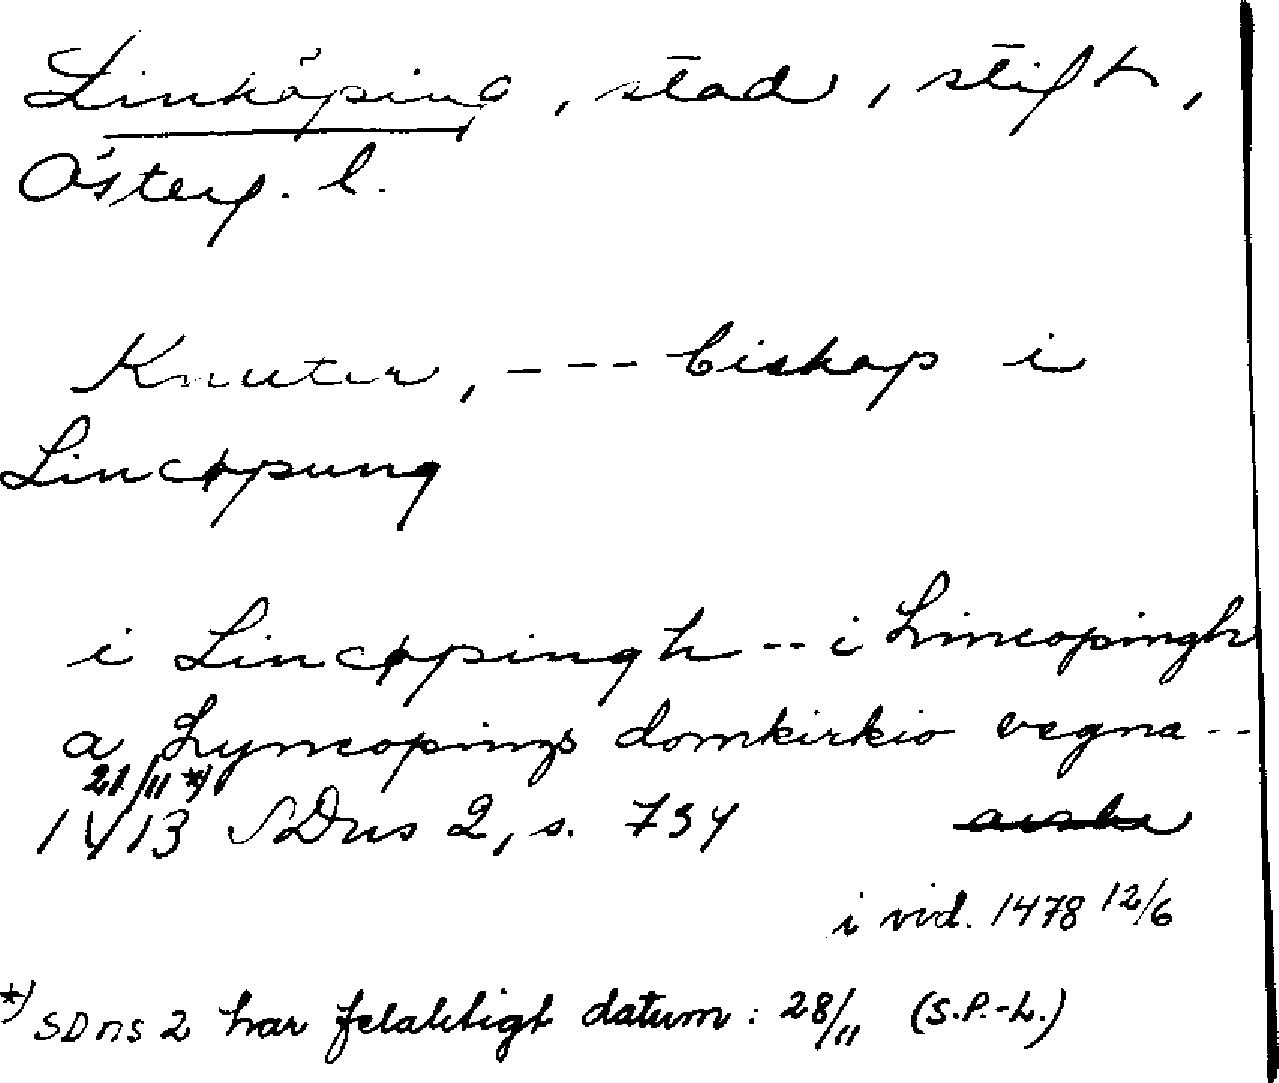 Linköping, stad, stift,
Österg. l.
Knuter, --- biskap i
Lincøpung
i Lincøpingh -- i Lincopingh
a Lyncopings domkirkio vegna --
21/11 *)
1413 SDns 2, s. 734
i vid. 1478 12/6
*) SDns 2 har felaktigt datum: 28/11 (S.P.-L.)